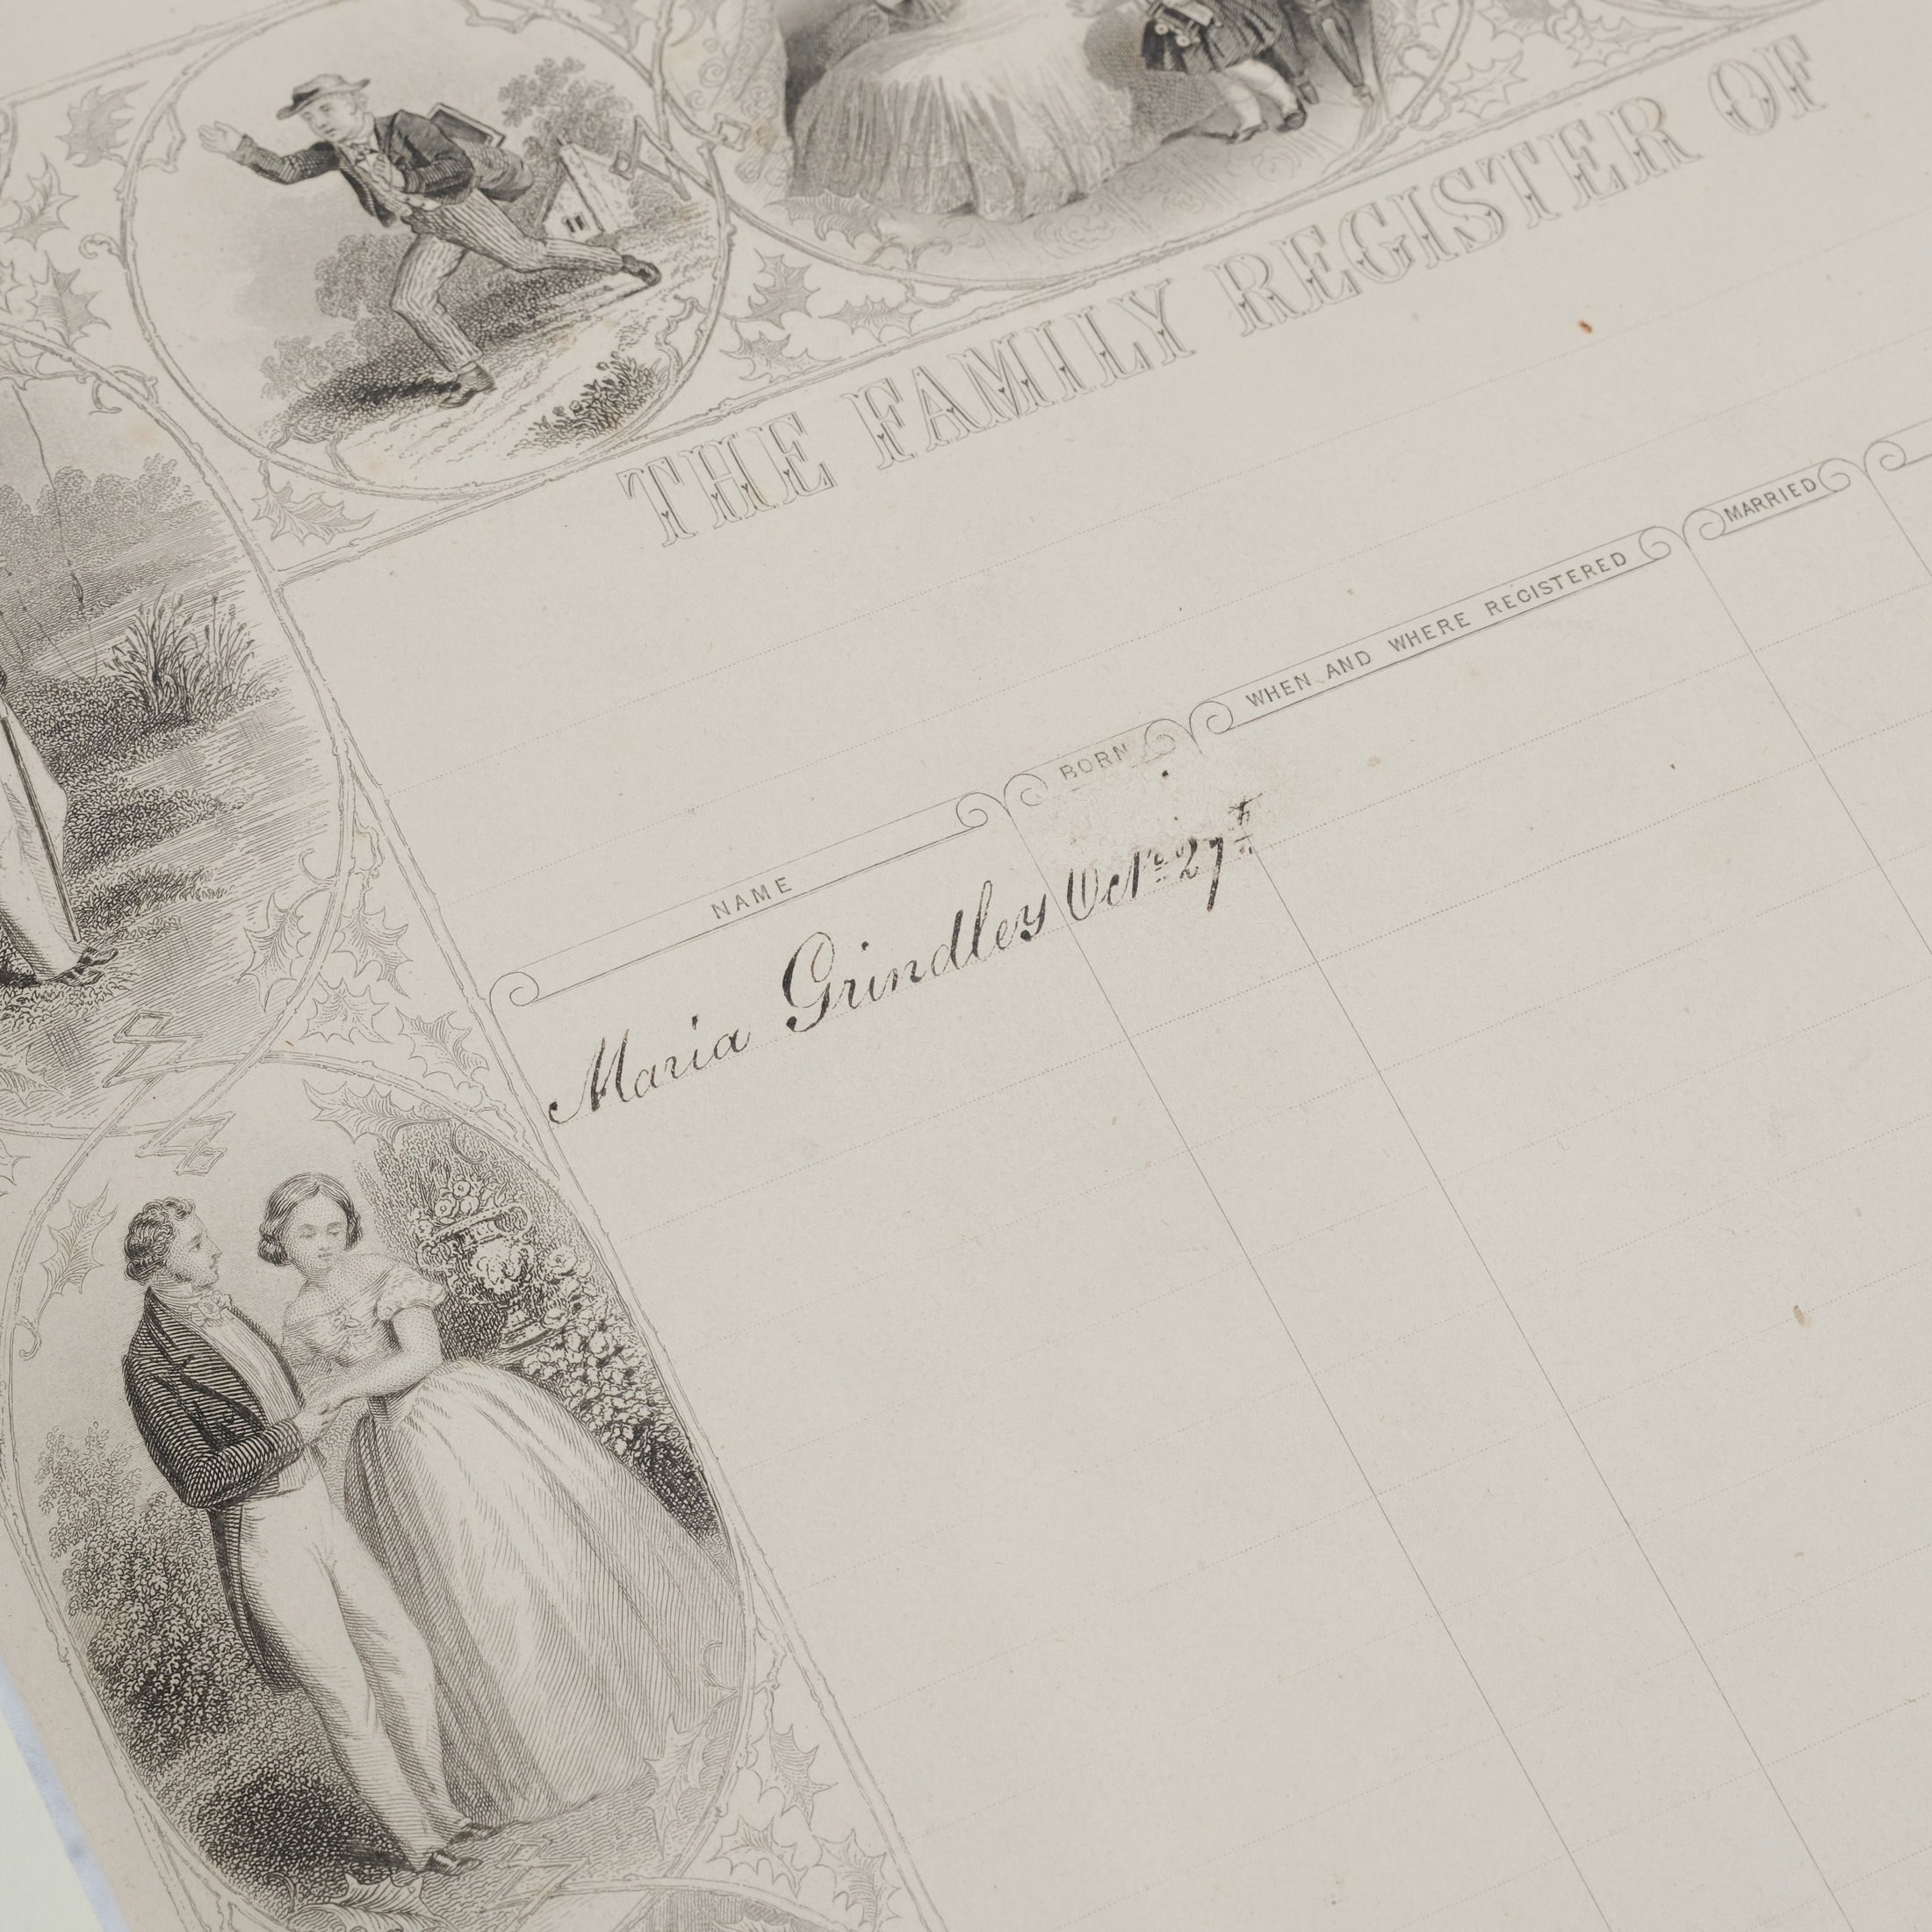 THE FAMILY REGISTER OF
NAME BORN WHEN AND WHERE REGISTERED MARRIED
Maria Grindley Octr 27th